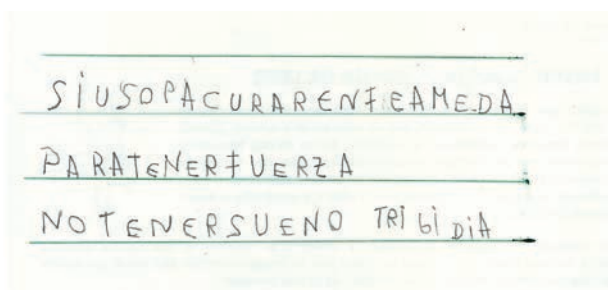 SIUSOPACURARENFEAMEDA
PARATENERFUERZA
NOTENERSUENO TRIGIDIA